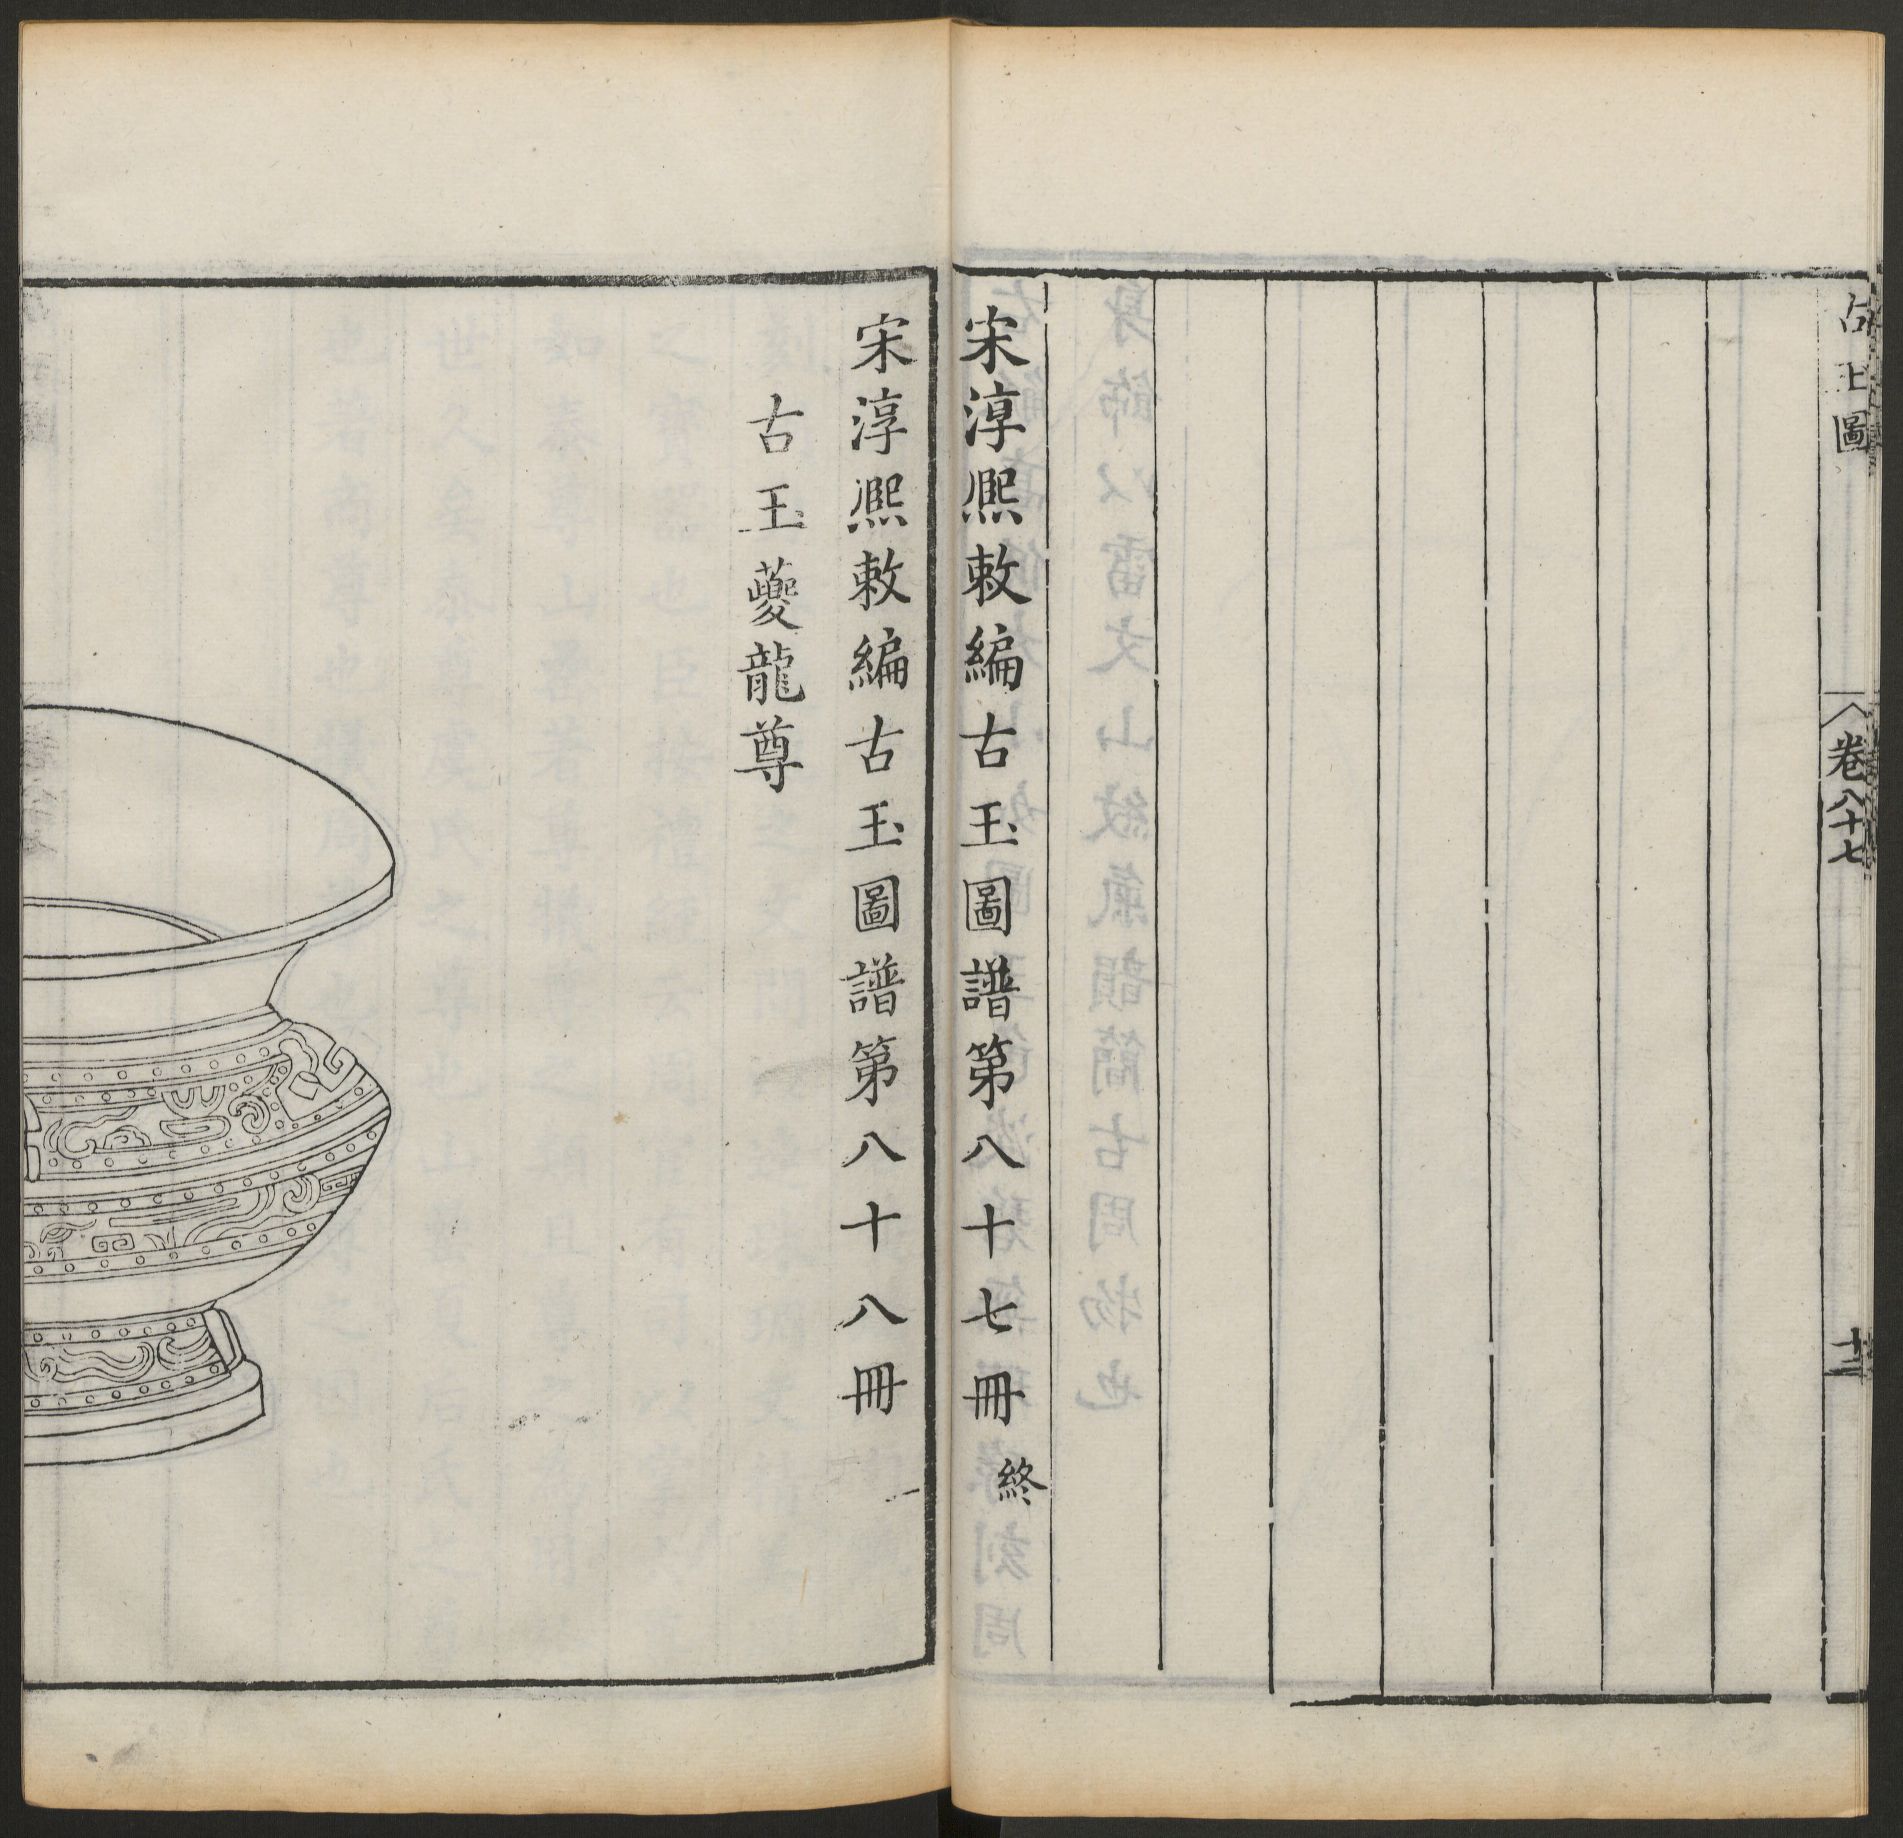 古玉圖
卷八十七
十二
宋淳熙敕編古玉圖譜第八十七冊 終
宋淳熙敕編古玉圖譜第八十八冊
古玉夔龍尊